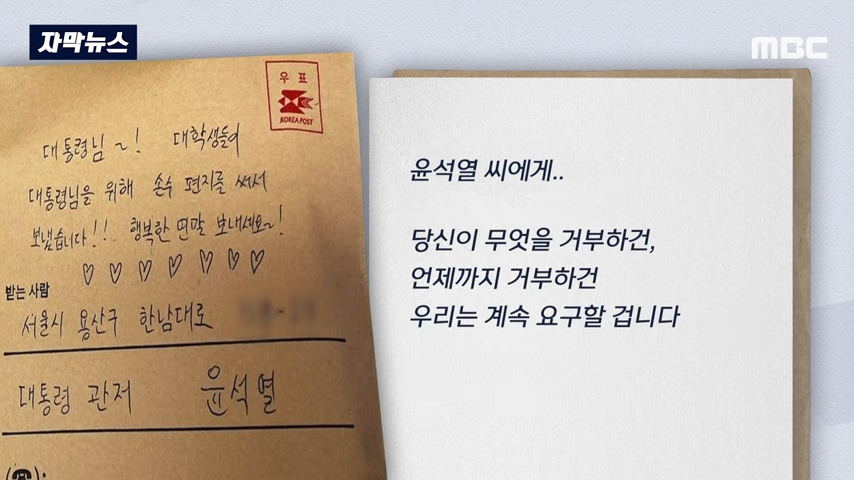 자막뉴스
MBC
우표
KOREA POST
대통령님~! 대학생들이
대통령님을 위해 손수 편지를 써서
보냈습니다!! 행복한 연말 보내세요~!
♡ ♡ ♡ ♡ ♡ ♡ ♡
받는 사람
서울시 용산구 한남대로
대통령 관저 윤석열
☎:
윤석열 씨에게..
당신이 무엇을 거부하건,
언제까지 거부하건
우리는 계속 요구할 겁니다